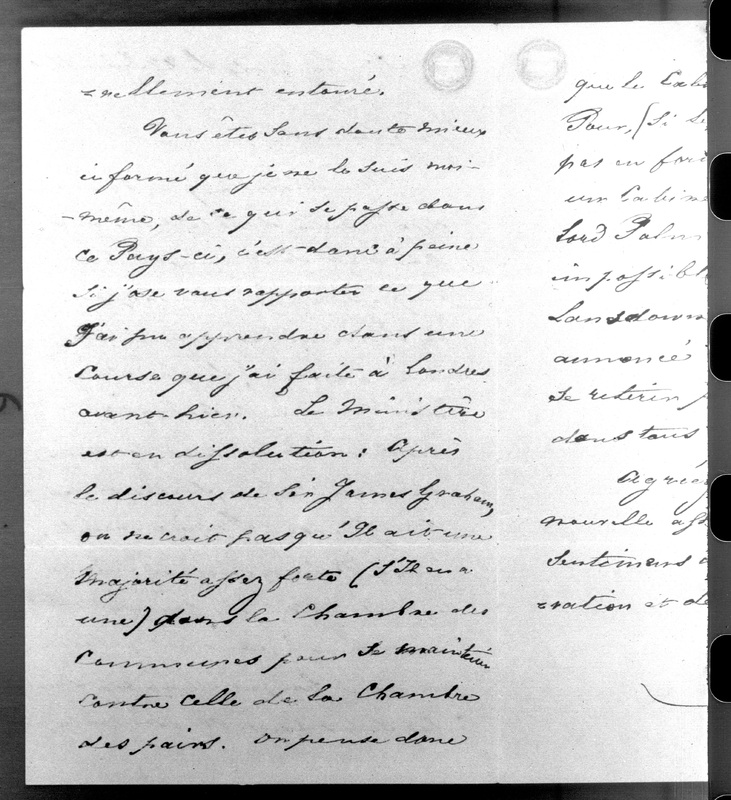 -rellement entouré.
Vous êtes sans doute mieux
informé que je ne le suis moi-
-même, de ce qui se passe dans
ce Pays-ci, c'est donc à peine
si j'ose vous rapporter ce que
J'ai pu apprendre dans une
Course que j'ai faite à Londres
avant-hier. Le Ministère
est en dissolution: Après
le discours de Sir James Graham,
on ne croit pas qu'Il ait une
Majorité assez forte (s'Il en a
une) dans la Chambre des
Communes pour se maintenir
contre celle de la Chambre
des pairs. On pense donc
que le Cabi
Pour, (si
pas en
un Cabine
Lord Palm
impossibl
Lansdown
annoncé
se retirer
dans tous
Agrée
nouvelle ass
Sentimens
-ration et de